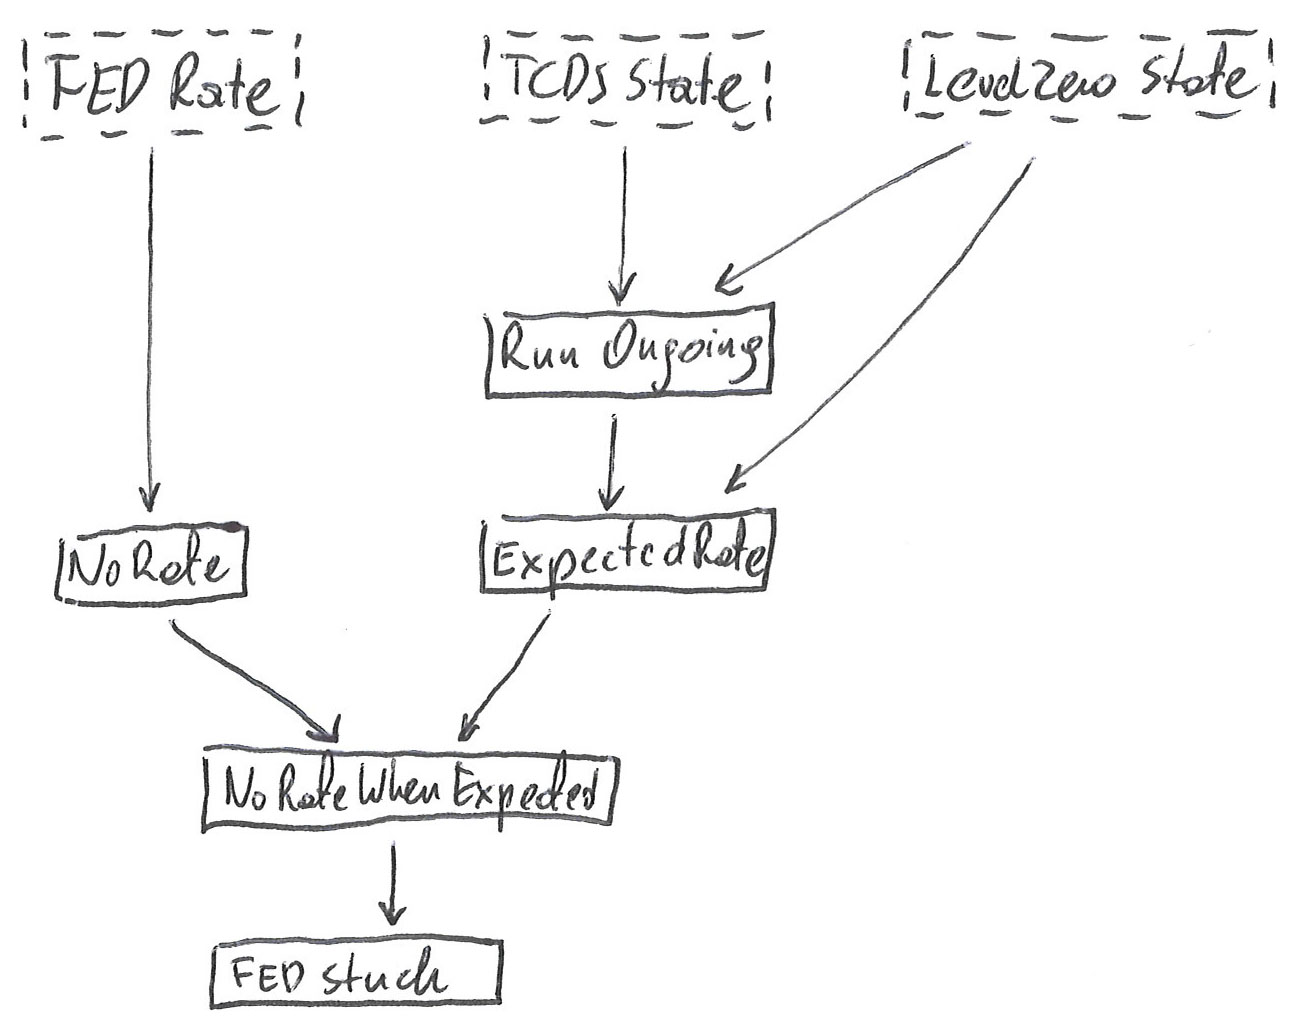 FED Rate
TCDS State
LevelZero State
Run Ongoing
No Rate
ExpectedRate
No Rate When Expected
FED stuck